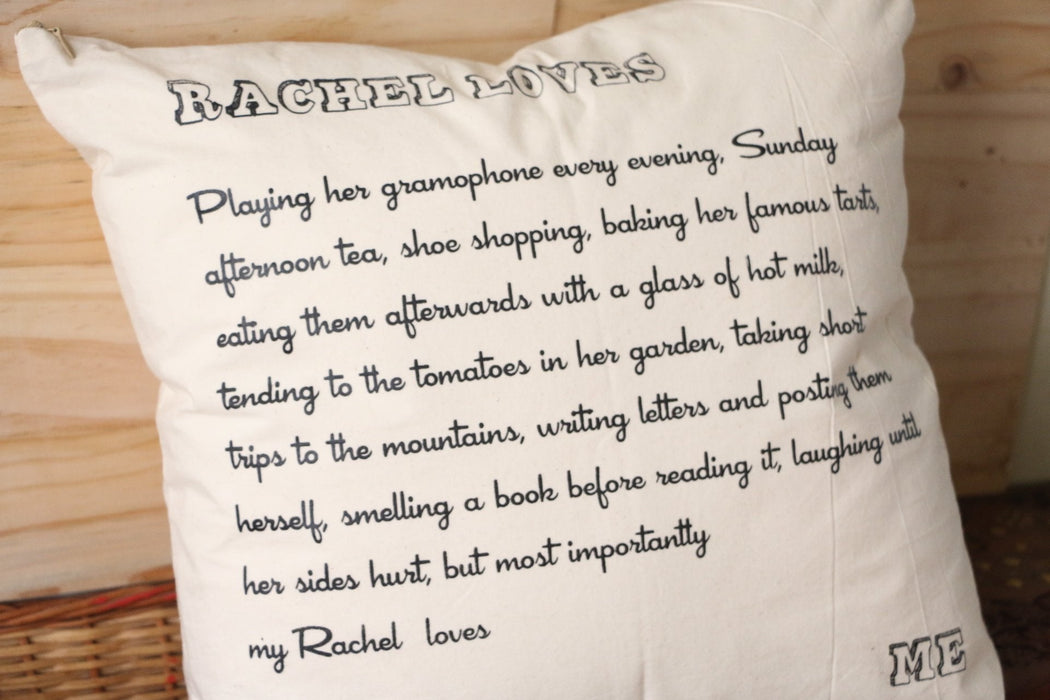 RACHEL LOVES
Playing her gramophone every evening, Sunday
afternoon tea, shoe shopping, baking her famous tarts,
eating them afterwards with a glass of hot milk,
tending to the tomatoes in her garden, taking short
trips to the mountains, writing letters and posting them
herself, smelling a book before reading it, laughing until
her sides hurt, but most importantly
my Rachel loves
ME